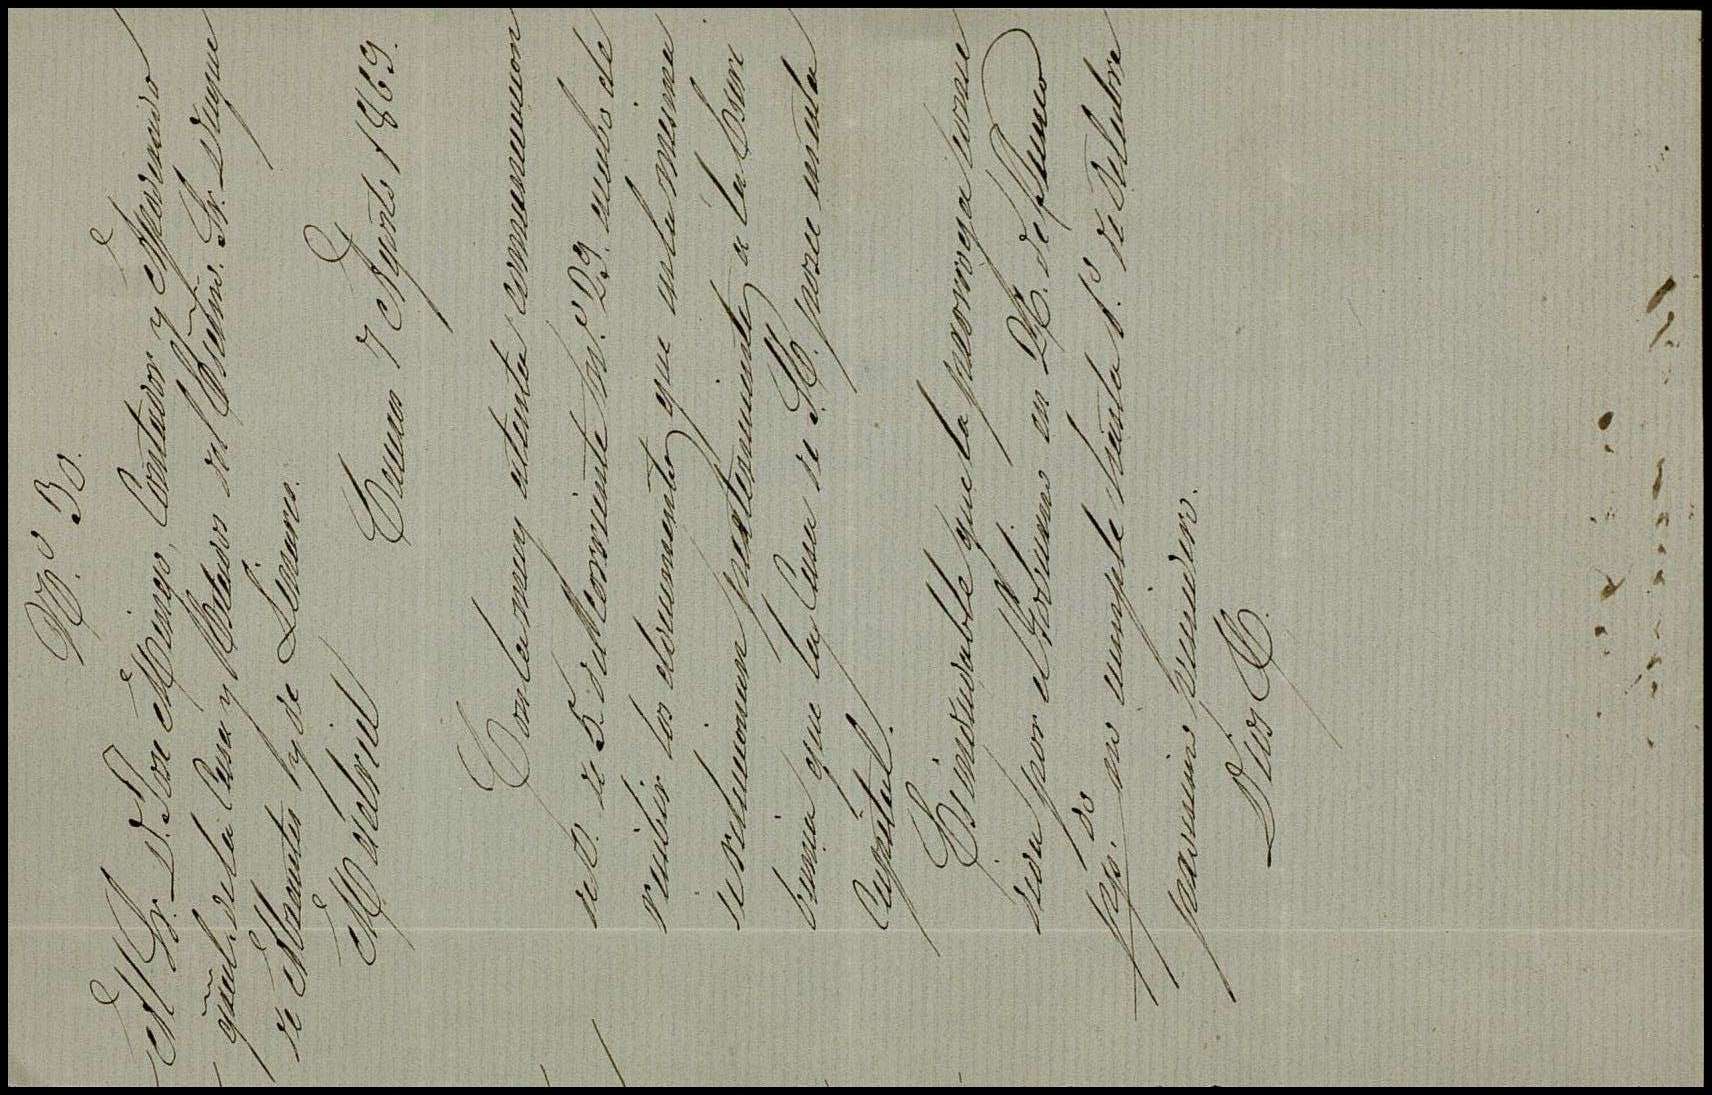 N.º 30.
Al Sr. D. José Mingo, Contador y Apoderado
gral. de la Casa y Estados del Exmo. Sr. Duque
de Abrantes y de Linares.
Madrid
Cuenca 7 Agosto 1869.
Con la muy atenta comunicacion
de V. de 5 del corriente N.º 29. acabo de
recibir los documentos que en la misma
se relacionan pertenecientes a la
que la Casa de S. E. posee en esta
Capital.
Es indudable que la prorroga conce
dida por el Gobierno en 26. de Junio
pp.do no cumple hasta 1.º de Octubre
procsimo venidero.
Dios